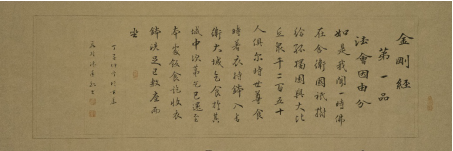 金剛經
第一品
法會因由分
如是我聞一時佛
在舍衛國祇樹
給孤獨園與大比
丘眾千二百五十
人俱尔時世尊食
時著衣持鉢入舍
衛大城乞食於其
城中次第乞已還至
本處飯食訖收衣
鉢洗足已敷座而
坐